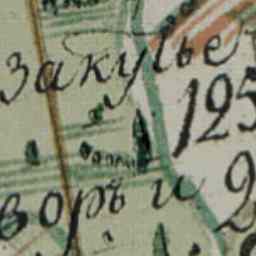 закупье
125
воръ и 2